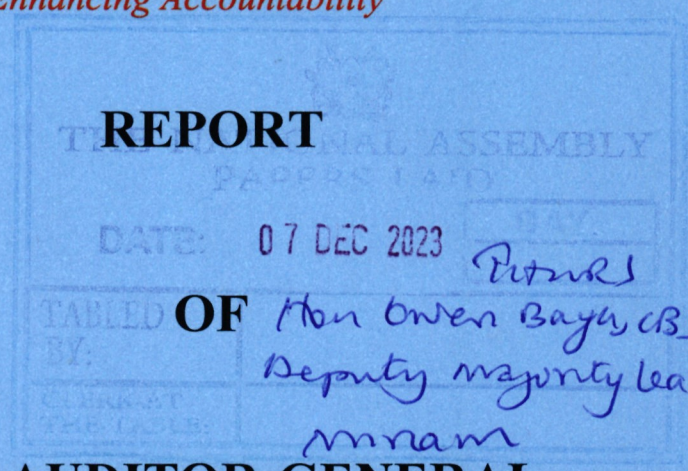 Enhancing Accountability
REPORT
THE NATIONAL ASSEMBLY
PAPERS LAID
DAY.
DATE: 07 DEC 2023
TABLED BY:
OF
Hon Owen Baya, CB
Deputy Majority Lea
CLERK-AT
THE-TABLE:
AUDITOR-GENERAL